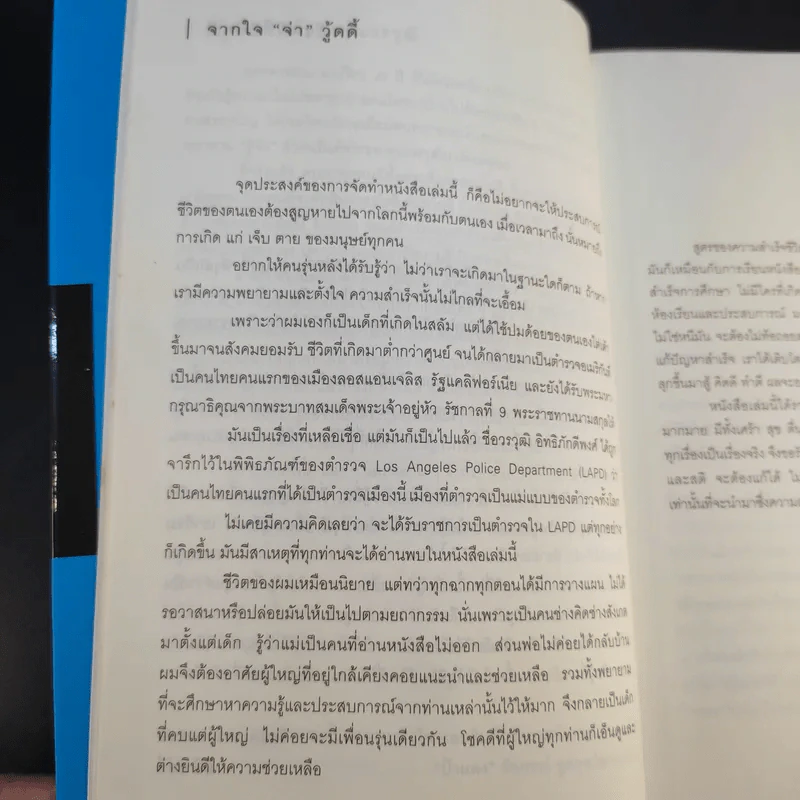 จากใจ “จ่า” วู้ดดี้
จุดประสงค์ของการจัดทำหนังสือเล่มนี้ ก็คือไม่อยากจะให้ประสบการณ์
ชีวิตของตนเองต้องสูญหายไปจากโลกนี้พร้อมกับตนเอง เมื่อเวลามาถึง นั่นหมายถึง
การเกิด แก่ เจ็บ ตาย ของมนุษย์ทุกคน
อยากให้คนรุ่นหลังได้รับรู้ว่า ไม่ว่าเราจะเกิดมาในฐานะใดก็ตาม ถ้าหาก
เรามีความพยายามและตั้งใจ ความสำเร็จนั้นไม่ไกลที่จะเอื้อม
เพราะว่าผมเองก็เป็นเด็กที่เกิดในสลัม แต่ได้ใช้ปมด้อยของตนเองไต่เต้า
ขึ้นมาจนสังคมยอมรับ ชีวิตที่เกิดมาต่ำกว่าศูนย์ จนได้กลายมาเป็นตำรวจอเมริกันที่
เป็นคนไทยคนแรกของเมืองลอสแอนเจลิส รัฐแคลิฟอร์เนีย และยังได้รับพระมหา
กรุณาธิคุณจากพระบาทสมเด็จพระเจ้าอยู่หัว รัชกาลที่ 9 พระราชทานนามสกุลให้
มันเป็นเรื่องที่เหลือเชื่อ แต่มันก็เป็นไปแล้ว ชื่อวรวุฒิ อิทธิภักดีพงศ์ ได้ถูก
จารึกไว้ในพิพิธภัณฑ์ของตำรวจ Los Angeles Police Department (LAPD) ว่า
เป็นคนไทยคนแรกที่ได้เป็นตำรวจเมืองนี้ เมืองที่ตำรวจเป็นแม่แบบของตำรวจทั้งโลก
ไม่เคยมีความคิดเลยว่า จะได้รับราชการเป็นตำรวจใน LAPD แต่ทุกอย่าง
ก็เกิดขึ้น มันมีสาเหตุที่ทุกท่านจะได้อ่านพบในหนังสือเล่มนี้
ชีวิตของผมเหมือนนิยาย แต่ทว่าทุกฉากทุกตอนได้มีการวางแผน ไม่ได้
รอวาสนาหรือปล่อยมันให้เป็นไปตามยถากรรม นั่นเพราะเป็นคนช่างคิดช่างสังเกต
มาตั้งแต่เด็ก รู้ว่าแม่เป็นคนที่อ่านหนังสือไม่ออก ส่วนพ่อไม่ค่อยได้กลับบ้าน
ผมจึงต้องอาศัยผู้ใหญ่ที่อยู่ใกล้เคียงคอยแนะนำและช่วยเหลือ รวมทั้งพยายาม
ที่จะศึกษาหาความรู้และประสบการณ์จากท่านเหล่านั้นไว้ให้มาก จึงกลายเป็นเด็ก
ที่คบแต่ผู้ใหญ่ ไม่ค่อยจะมีเพื่อนรุ่นเดียวกัน โชคดีที่ผู้ใหญ่ทุกท่านก็เอ็นดูและ
ต่างยินดีให้ความช่วยเหลือ
สูตรของความสำเร็จ
มันก็เหมือนกับการเรียนหนังสือ
สำเร็จการศึกษา ไม่มีใครที่เกิด
ห้องเรียนและประสบการณ์
ไม่ใช่หนีมัน จะต้องไม่ท้อถอย
แก้ปัญหาสำเร็จ เราได้เติบโต
ลุกขึ้นมาสู้ คิดดี ทำดี
หนังสือเล่มนี้ได้
มากมาย มีทั้งเศร้า สุข
ทุกเรื่องเป็นเรื่องจริง
และสติ จะต้องแก้ได้
เท่านั้นที่จะนำมาซึ่งความ